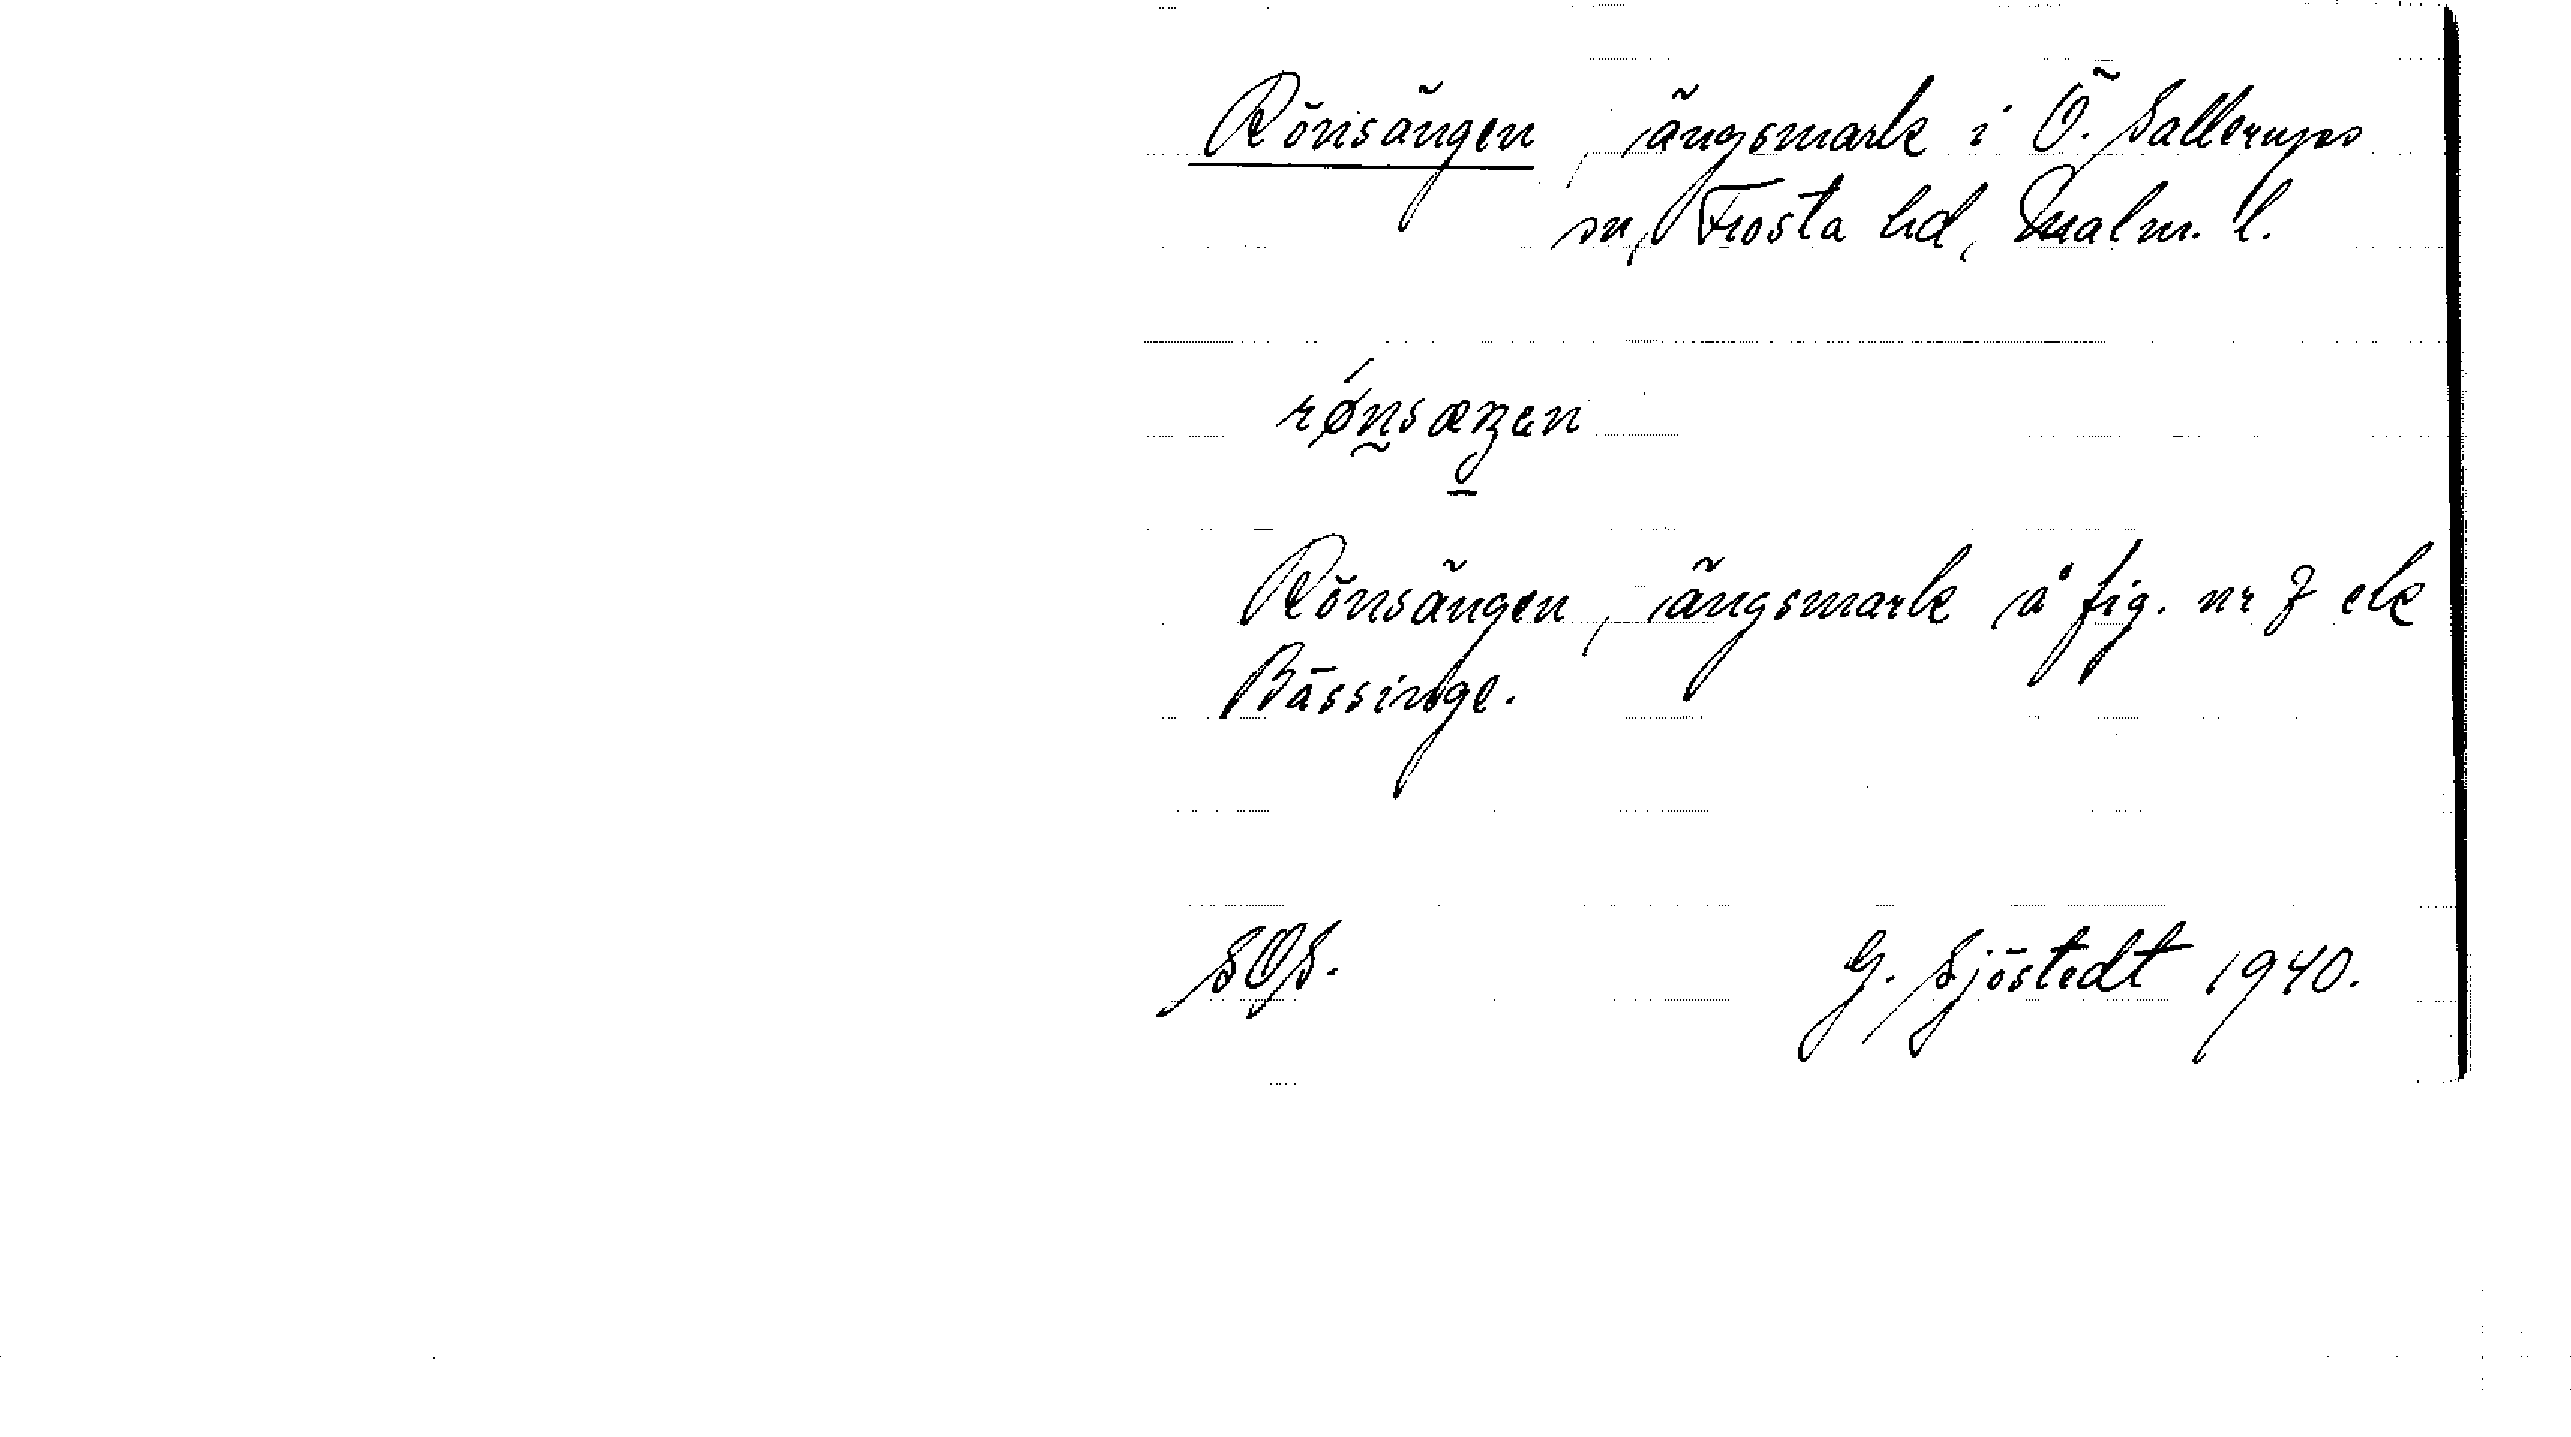 Rönsängen, ängsmark i Ö. Sallerups
sn, Frosta hd, Malm. l.
rønsæŋen
Rönsängen, ängsmark å fig. nr 7 ek
Bässinge.
SOS.
G. Sjöstedt 1940.